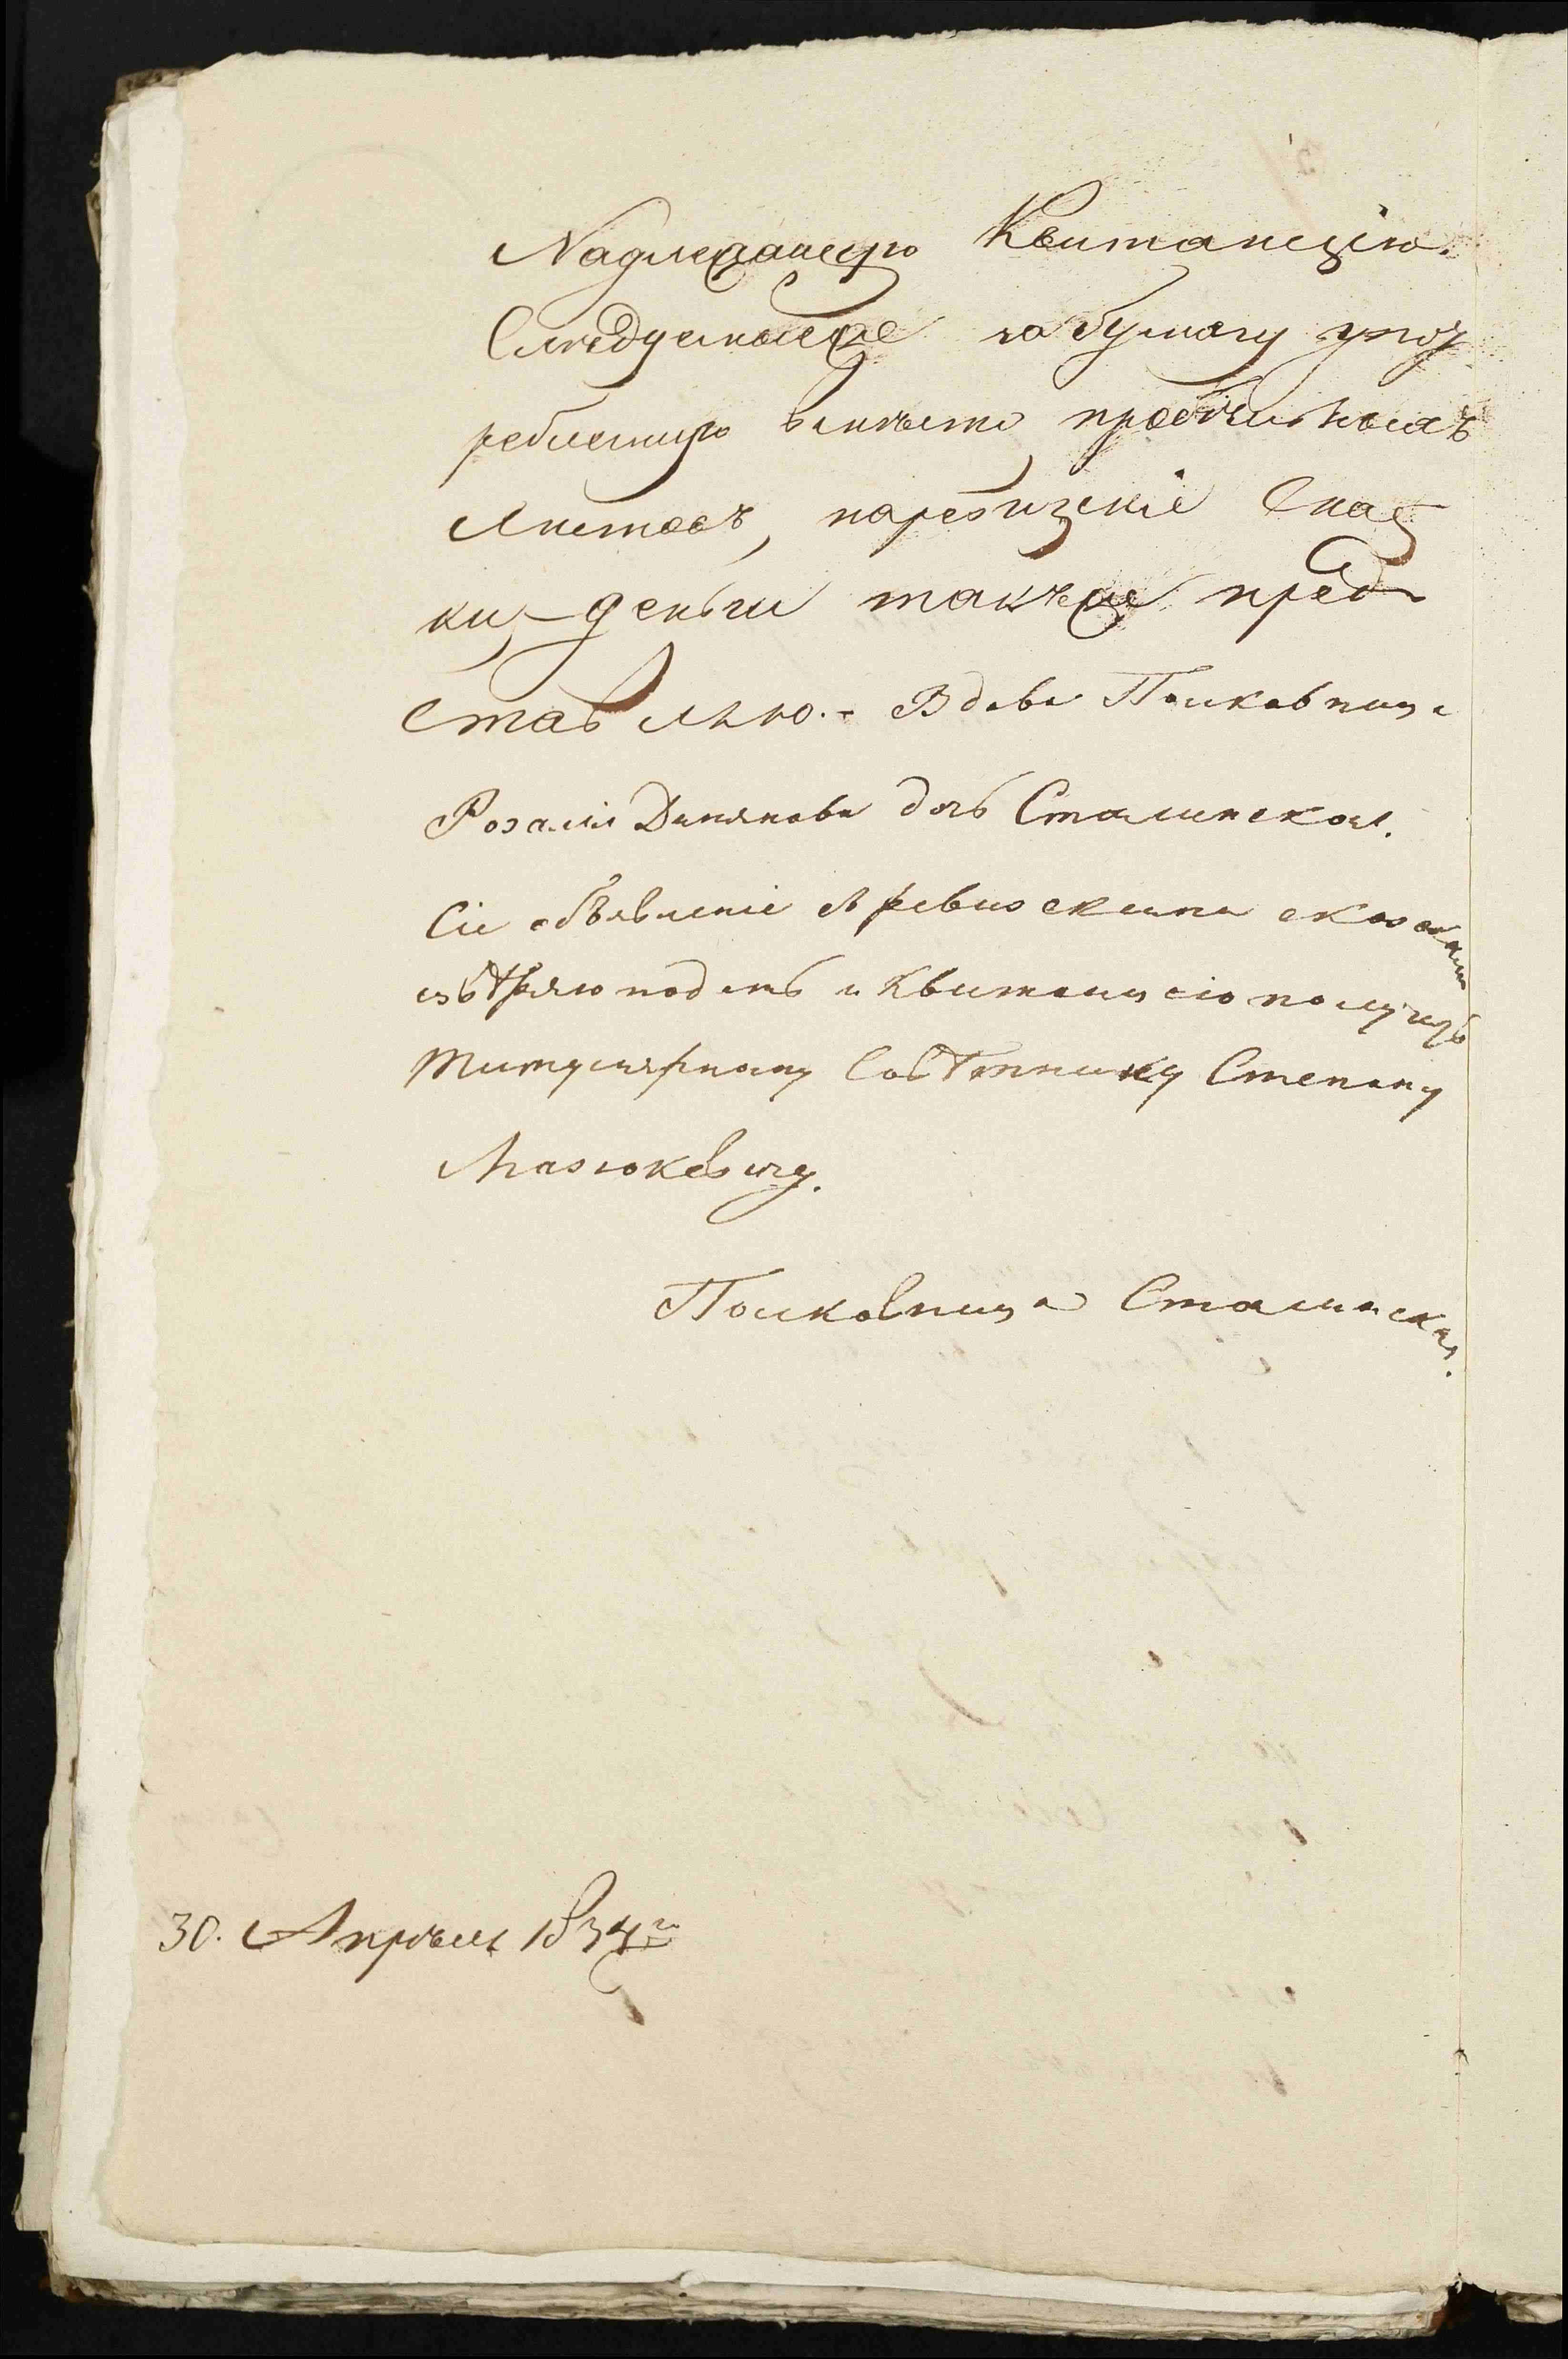 Надлежащую Квитанцію.
Слѣдуемыеже за бумагу упот
ребленную вмѣсто пробѣльныхъ
листовъ, на ревизскіе Сказ
ки, деньги такъже пред
ставляю. - Вдова Полковница
Розалія Демянова дочь Сталинская.
Сіе объявленіе съ ревизскими сказками
ввѣряю подать и Квитанцію получить
Титулярному Совѣтнику Степану
Мазюкевичу.
Полковница Сталинская.
30. Апрѣля 1834 го